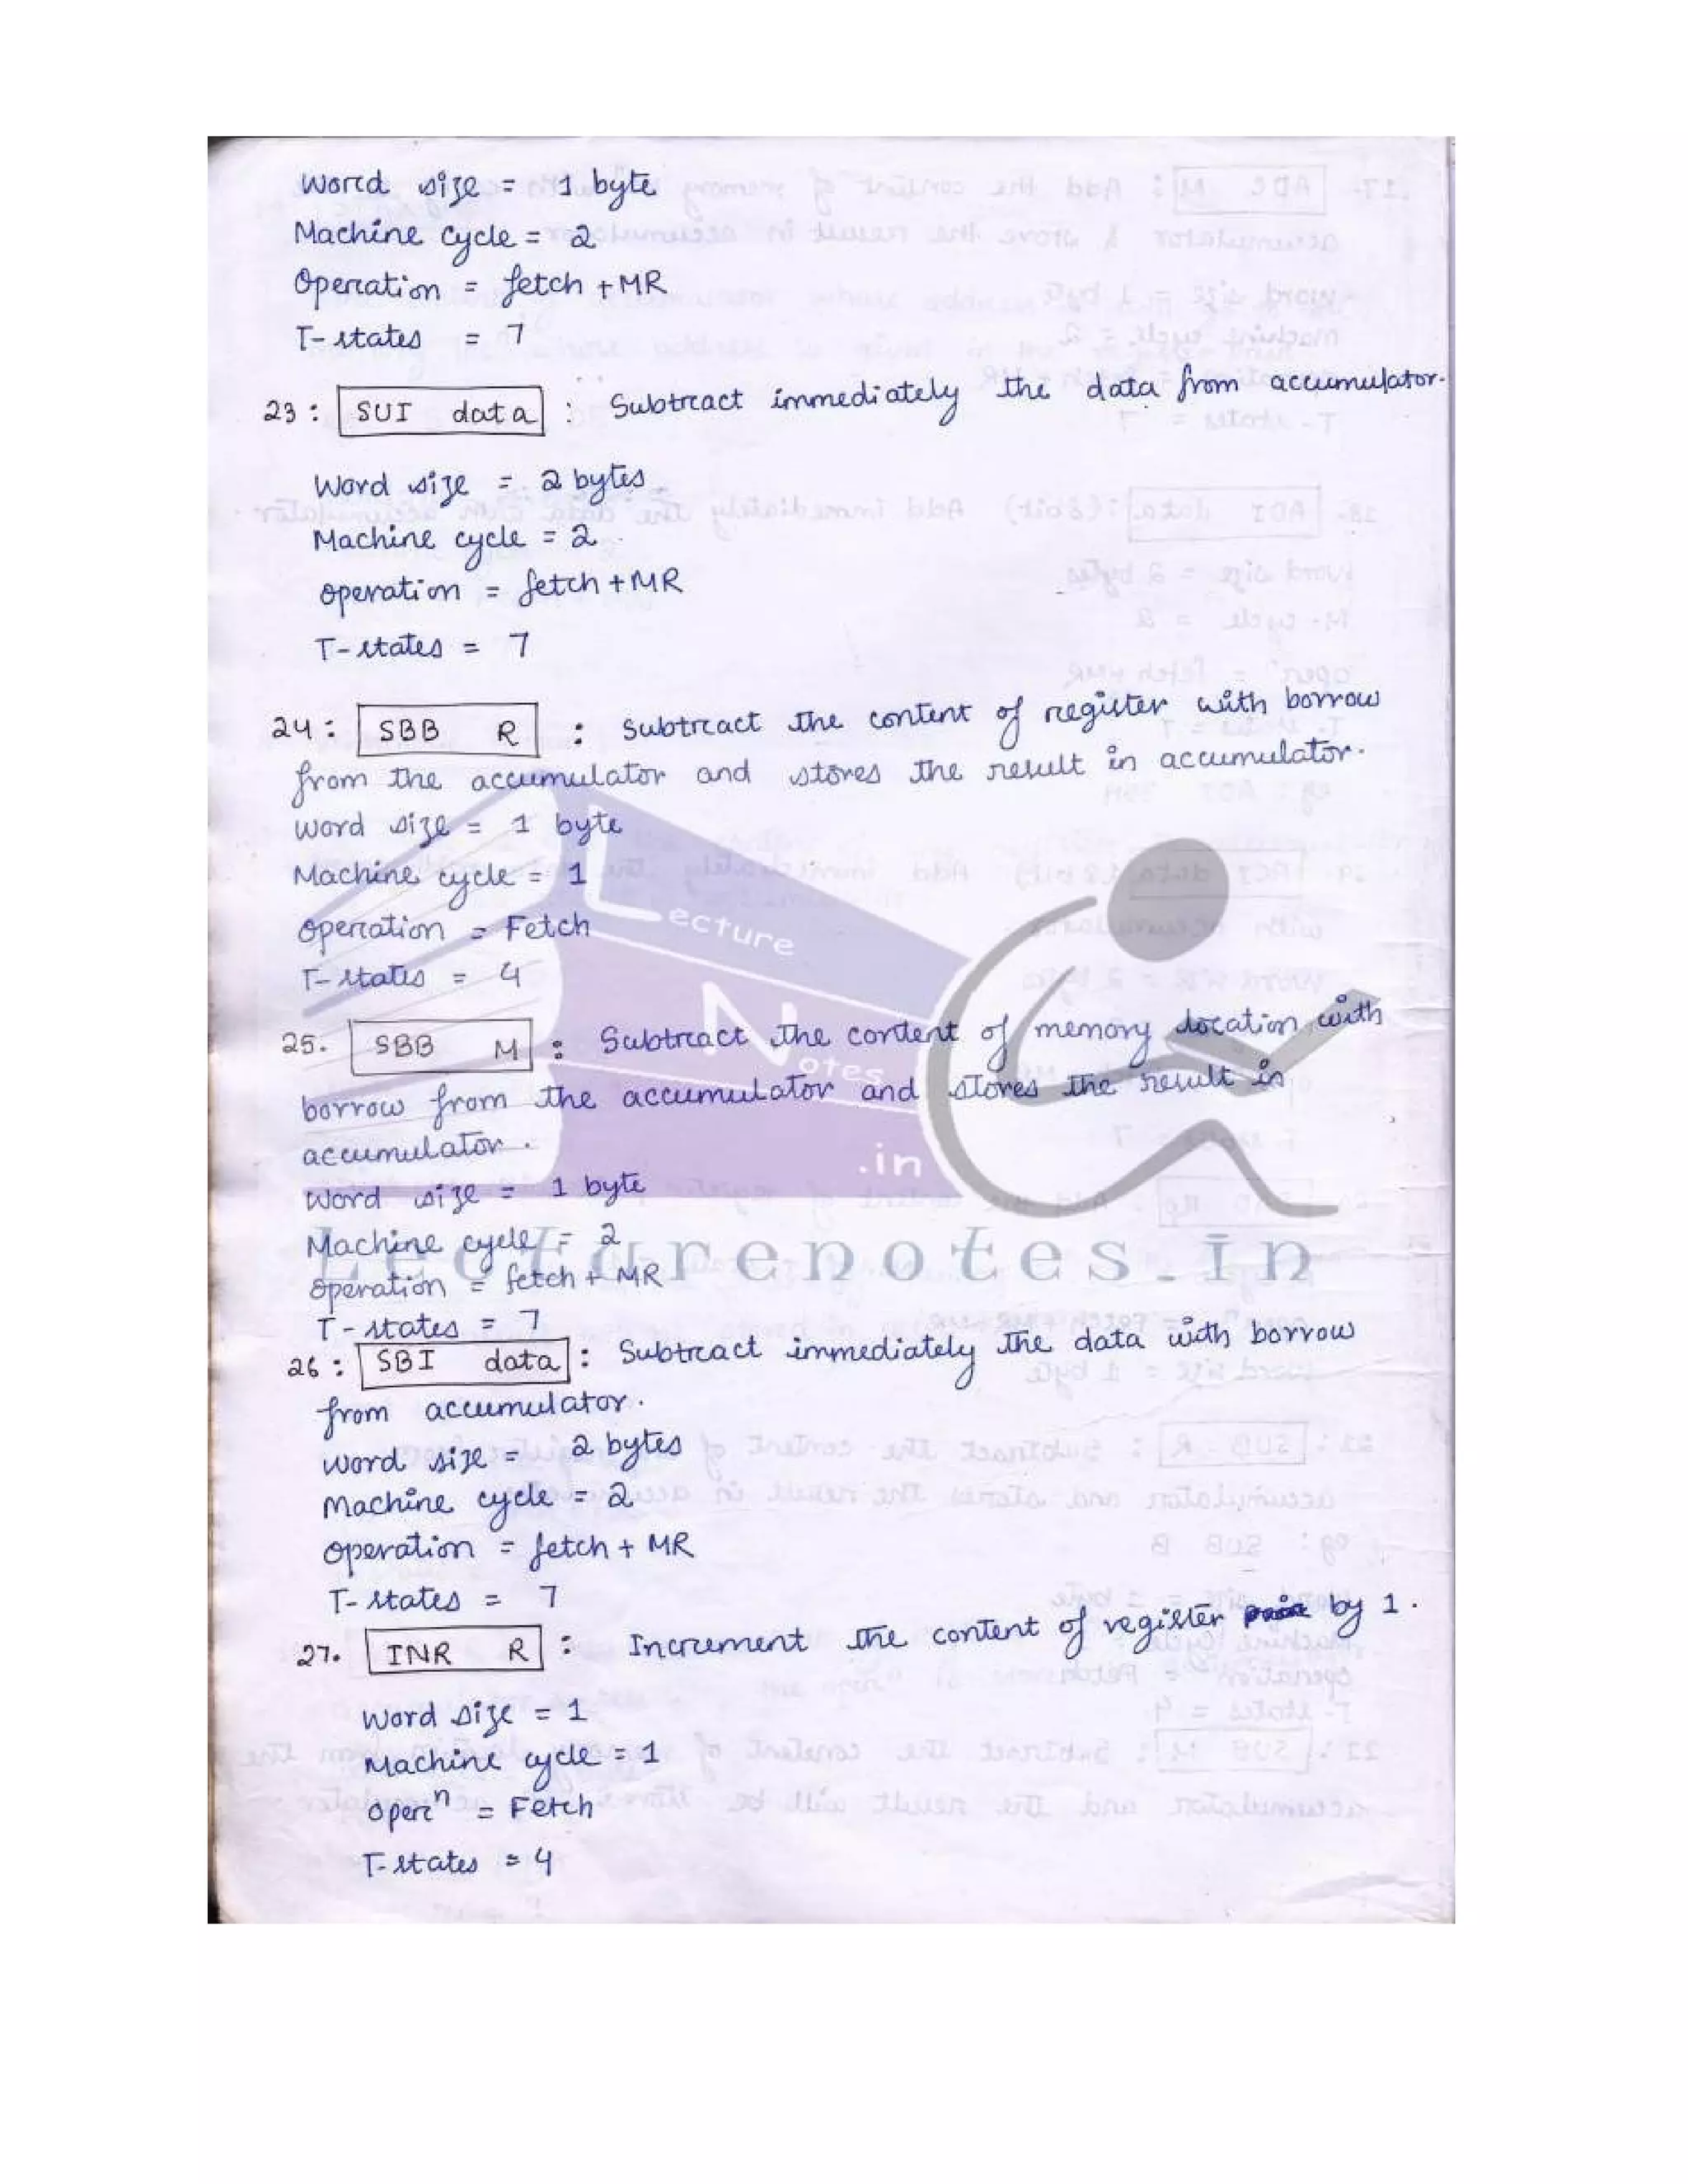 Word size = 1 byte
Machine cycle = 2
Operation = fetch + MR
T-states = 7
23 : SUI data : Subtract immediately the data from accumulator.
Word size = 2 bytes
Machine cycle = 2
operation = fetch + MR
T-states = 7
24 : SBB R : Subtract the content of register with borrow
from the accumulator and stores the result in accumulator.
Word size = 1 byte
Machine cycle = 1
operation = Fetch
T-states = 4
25. SBB M : Subtract the content of memory location with
borrow from the accumulator and stores the result in
accumulator.
Word size = 1 byte
Machine cycle = 2
operation = fetch + MR
T-states = 7
26 : SBI data : Subtract immediately the data with borrow
from accumulator.
word size = 2 bytes
Machine cycle = 2
operation = fetch + MR
T-states = 7
27. INR R : Increment the content of register by 1.
Word size = 1
Machine cycle = 1
opern = Fetch
T-states = 4
Lecture
Notes
.in
Lecturenotes.in